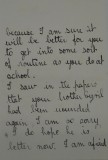 because I am sure it
will be better for you
to get into some sort
of routine as you do at
school.
I saw in the papers
that your
had been wounded
again I am so sorry
I do hope he is
better now. I am afraid